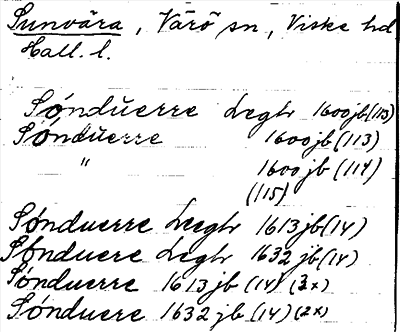 Sunvära, Värö sn, Viske hd
Hall. l.
Sónduerre Legtr 1600 jb (113)
Sóndŭerre 1600 jb (113)
" 1600 jb (114)
(115)
Sønduerre Leegtr 1613 jb (14)
Sønduere Legtr 1632 jb (14)
Sónduerre 1613 jb (14) (3x)
Sónduere 1632 jb (14) (2x)